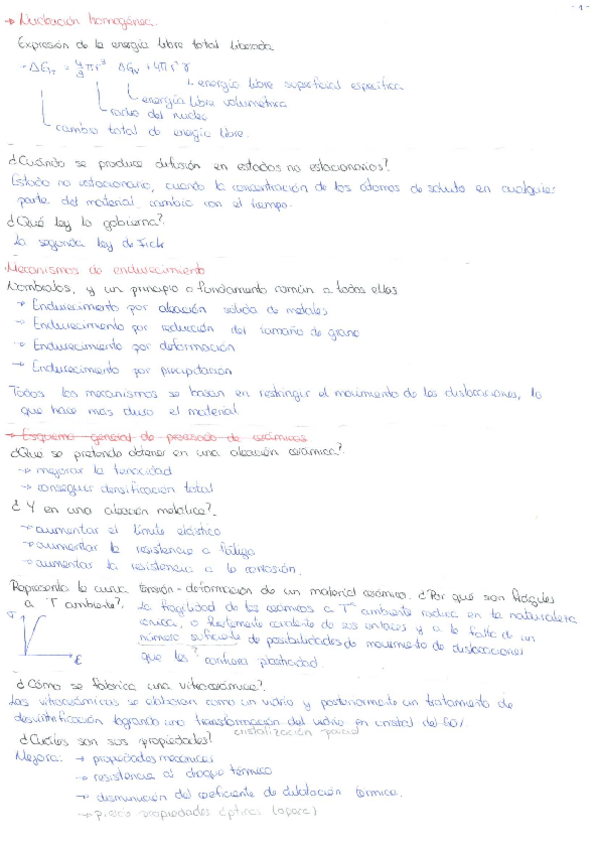 - 1 -
→ Nucleación homogénea.
Expresión de la energía libre total liberada
- ΔG_T = 4/3 πr³ ΔG_V + 4πr² γ
energía libre superficial específica
energía libre volumétrica
radio del núcleo
cambio total de energía libre.
¿Cuándo se produce difusión en estados no estacionarios?
Estado no estacionario, cuando la concentración de los átomos de soluto en cualquier
parte del material cambia con el tiempo.
¿Qué ley lo gobierna?
La segunda ley de Fick
Mecanismos de endurecimiento
Nombralos, y un principio o fundamento común a todos ellos
→ Endurecimiento por aleación sólida de metales
→ Endurecimiento por reducción del tamaño de grano
→ Endurecimiento por deformación
→ Endurecimiento por precipitación
Todos los mecanismos se basan en restringir el movimiento de las dislocaciones, lo
que hace más duro el material
→ Esquema general de procesado de cerámicos
¿Qué se pretende obtener en una aleación cerámica?
→ mejorar la tenacidad
→ conseguir densificación total
¿Y en una aleación metálica?
→ aumentar el límite elástico
→ aumentar la resistencia a fatiga
→ aumentar la resistencia a la corrosión.
Representa la curva tensión-deformación de un material cerámico. ¿Por qué son frágiles
a T ambiente?
La fragilidad de los cerámicos a Tª ambiente radica en la naturaleza
iónica, o fuertemente covalente de sus enlaces y a la falta de un
número suficiente de posibilidades de movimiento de dislocaciones
que les ? confiera plasticidad.
σ
ε
¿Cómo se fabrica una vitrocerámica?
Las vitrocerámicas se elaboran como un vidrio y posteriormente un tratamiento de
desvitrificación logrando una transformación del vidrio en cristal del 50%
cristalización parcial
¿Cuáles son sus propiedades?
Mejora: → propiedades mecánicas
→ resistencia al choque térmico
→ disminución del coeficiente de dilatación térmica.
→ propiedades ópticas (opaca)